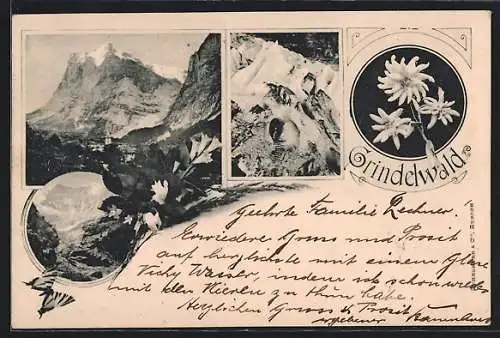 Grindelwald
Geehrte Familie Lechner!
Erwiedere Gruss und Prosit
auf herzlichste mit einem Glase
Vichy Wasser, indem ich schon wieder
mit den Nieren zu thun habe.
Herzlichen Gruss & Prosit
ergebener